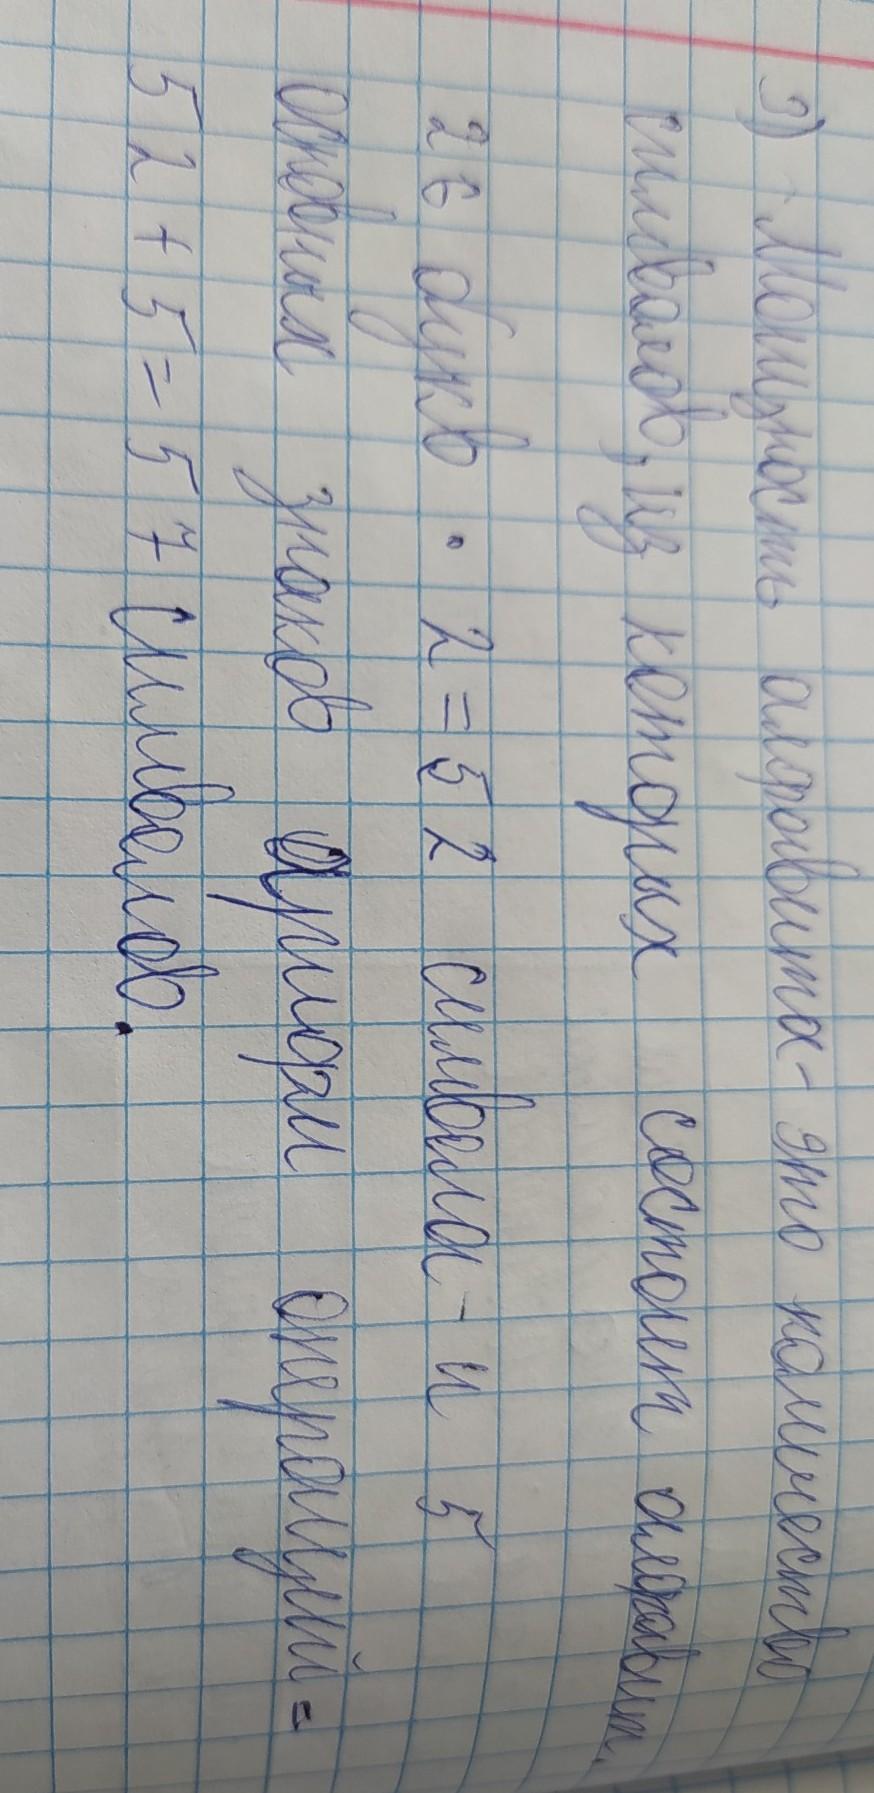 3) Мощность алфавита - это количество
символов, из которых состоит алфавит.
26 букв · 2 = 52 символа - и 5
основных знаков арифм операций =
52 + 5 = 57 символов.